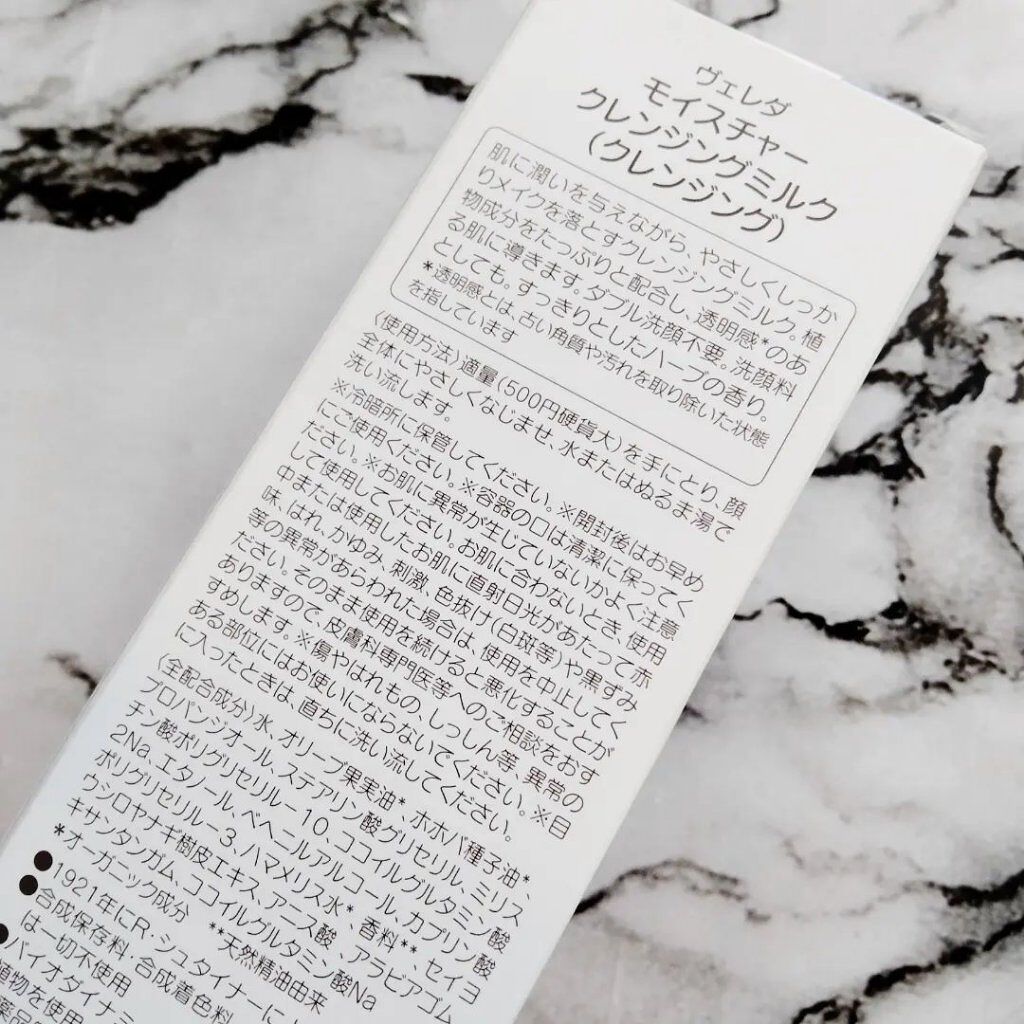 ヴェレダ
モイスチャー
クレンジングミルク
(クレンジング)
肌に潤いを与えながら、やさしくしっか
りメイクを落とすクレンジングミルク。植
物成分をたっぷりと配合し、透明感*のあ
る肌に導きます。ダブル洗顔不要。洗顔料
としても。すっきりとしたハーブの香り。
*透明感とは、古い角質や汚れを取り除いた状態
を指しています
〈使用方法〉適量(500円硬貨大)を手にとり、顔
全体にやさしくなじませ、水またはぬるま湯で
洗い流します。
※冷暗所に保管してください。※開封後はお早め
にご使用ください。※容器の口は清潔に保ってく
ださい。※お肌に異常が生じていないかよく注意
して使用してください。お肌に合わないとき、使用
中または使用したお肌に直射日光があたって赤
味、はれ、かゆみ、刺激、色抜け(白斑等)や黒ずみ
等の異常があらわれた場合は、使用を中止してく
ださい。そのまま使用を続けると悪化することが
ありますので、皮膚科専門医等へのご相談をおす
すめします。※傷やはれもの、しっしん等、異常の
ある部位にはお使いにならないでください。※目
に入ったときは、直ちに洗い流してください。
〈全配合成分〉水、オリーブ果実油*、ホホバ種子油*、
プロパンジオール、ステアリン酸グリセリル、ミリス
チン酸ポリグリセリル-10、ココイルグルタミン酸
2Na、エタノール、ベヘニルアルコール、カプリン酸
ポリグリセリル-3、ハマメリス水*、香料**、セイヨ
ウシロヤナギ樹皮エキス、アース酸、アラビアゴム、
キサンタンガム、ココイルグルタミン酸Na
*オーガニック成分 **天然精油由来
●1921年にR.シュタイナーに
●合成保存料・合成着色料
は一切不使用
●バイオダイナミ
植物を使用